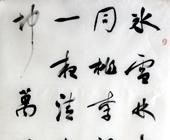 冰雪林
同桃李
一夜清
坤萬